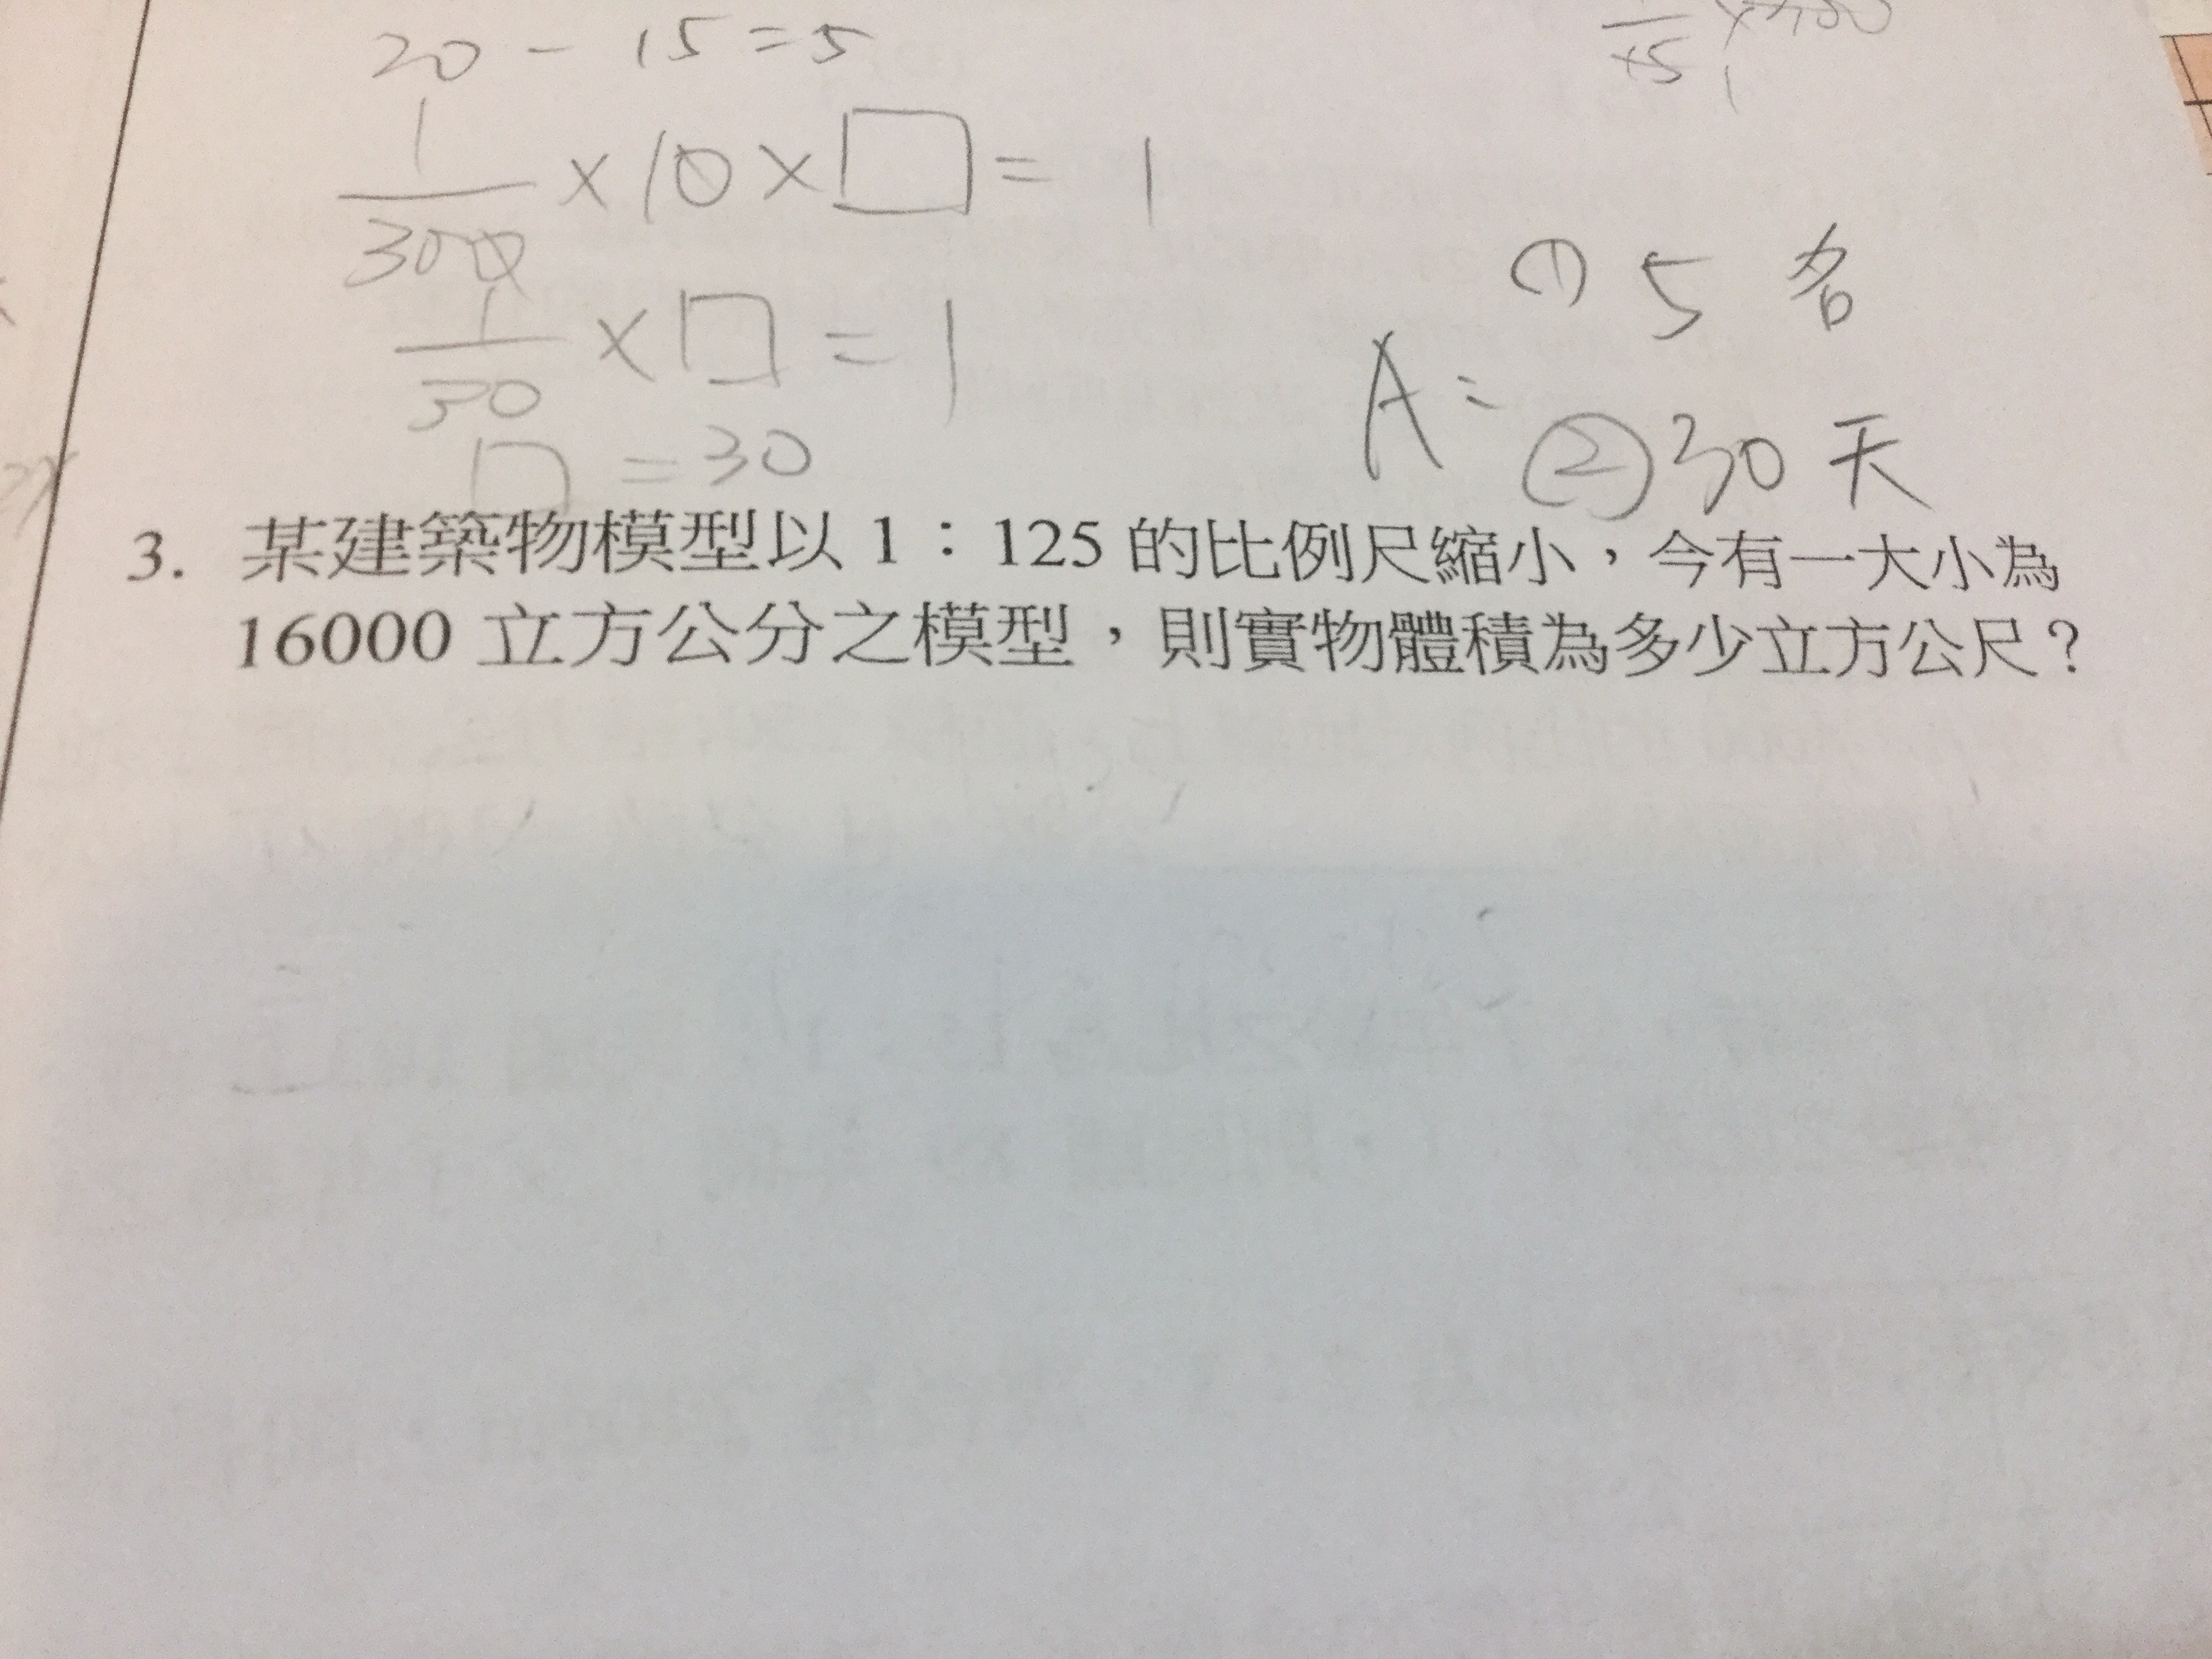 20 - 15 = 5
1/300 × 10 × □ = 1
1/30 × □ = 1
□ = 30
A: ① 5 名
② 30 天
3. 某建築物模型以 1：125 的比例尺縮小，今有一大小為
16000 立方公分之模型，則實物體積為多少立方公尺？